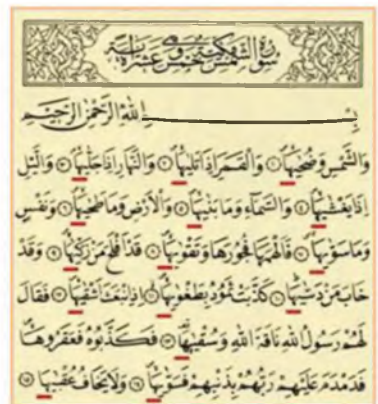 سورة الشمس مكية وهي خمس عشرة اية
بسم الله الرحمن الرحيم
والشمس وضحيها ١ والقمر اذا تليها ٢ والنهار اذا جليها ٣ واليل
اذا يغشيها ٤ والسماء وما بنيها ٥ والارض وما طحيها ٦ ونفس
وما سويها ٧ فالهمها فجورها وتقويها ٨ قد افلح من زكيها ٩ وقد
خاب من دسيها ١٠ كذبت ثمود بطغويها ١١ اذ انبعث اشقيها ١٢ فقال
لهم رسول الله ناقة الله وسقييها ١٣ فكذبوه فعقروها
فدمدم عليهم ربهم بذنبهم فسويها ١٤ ولا يخاف عقبيها ١٥